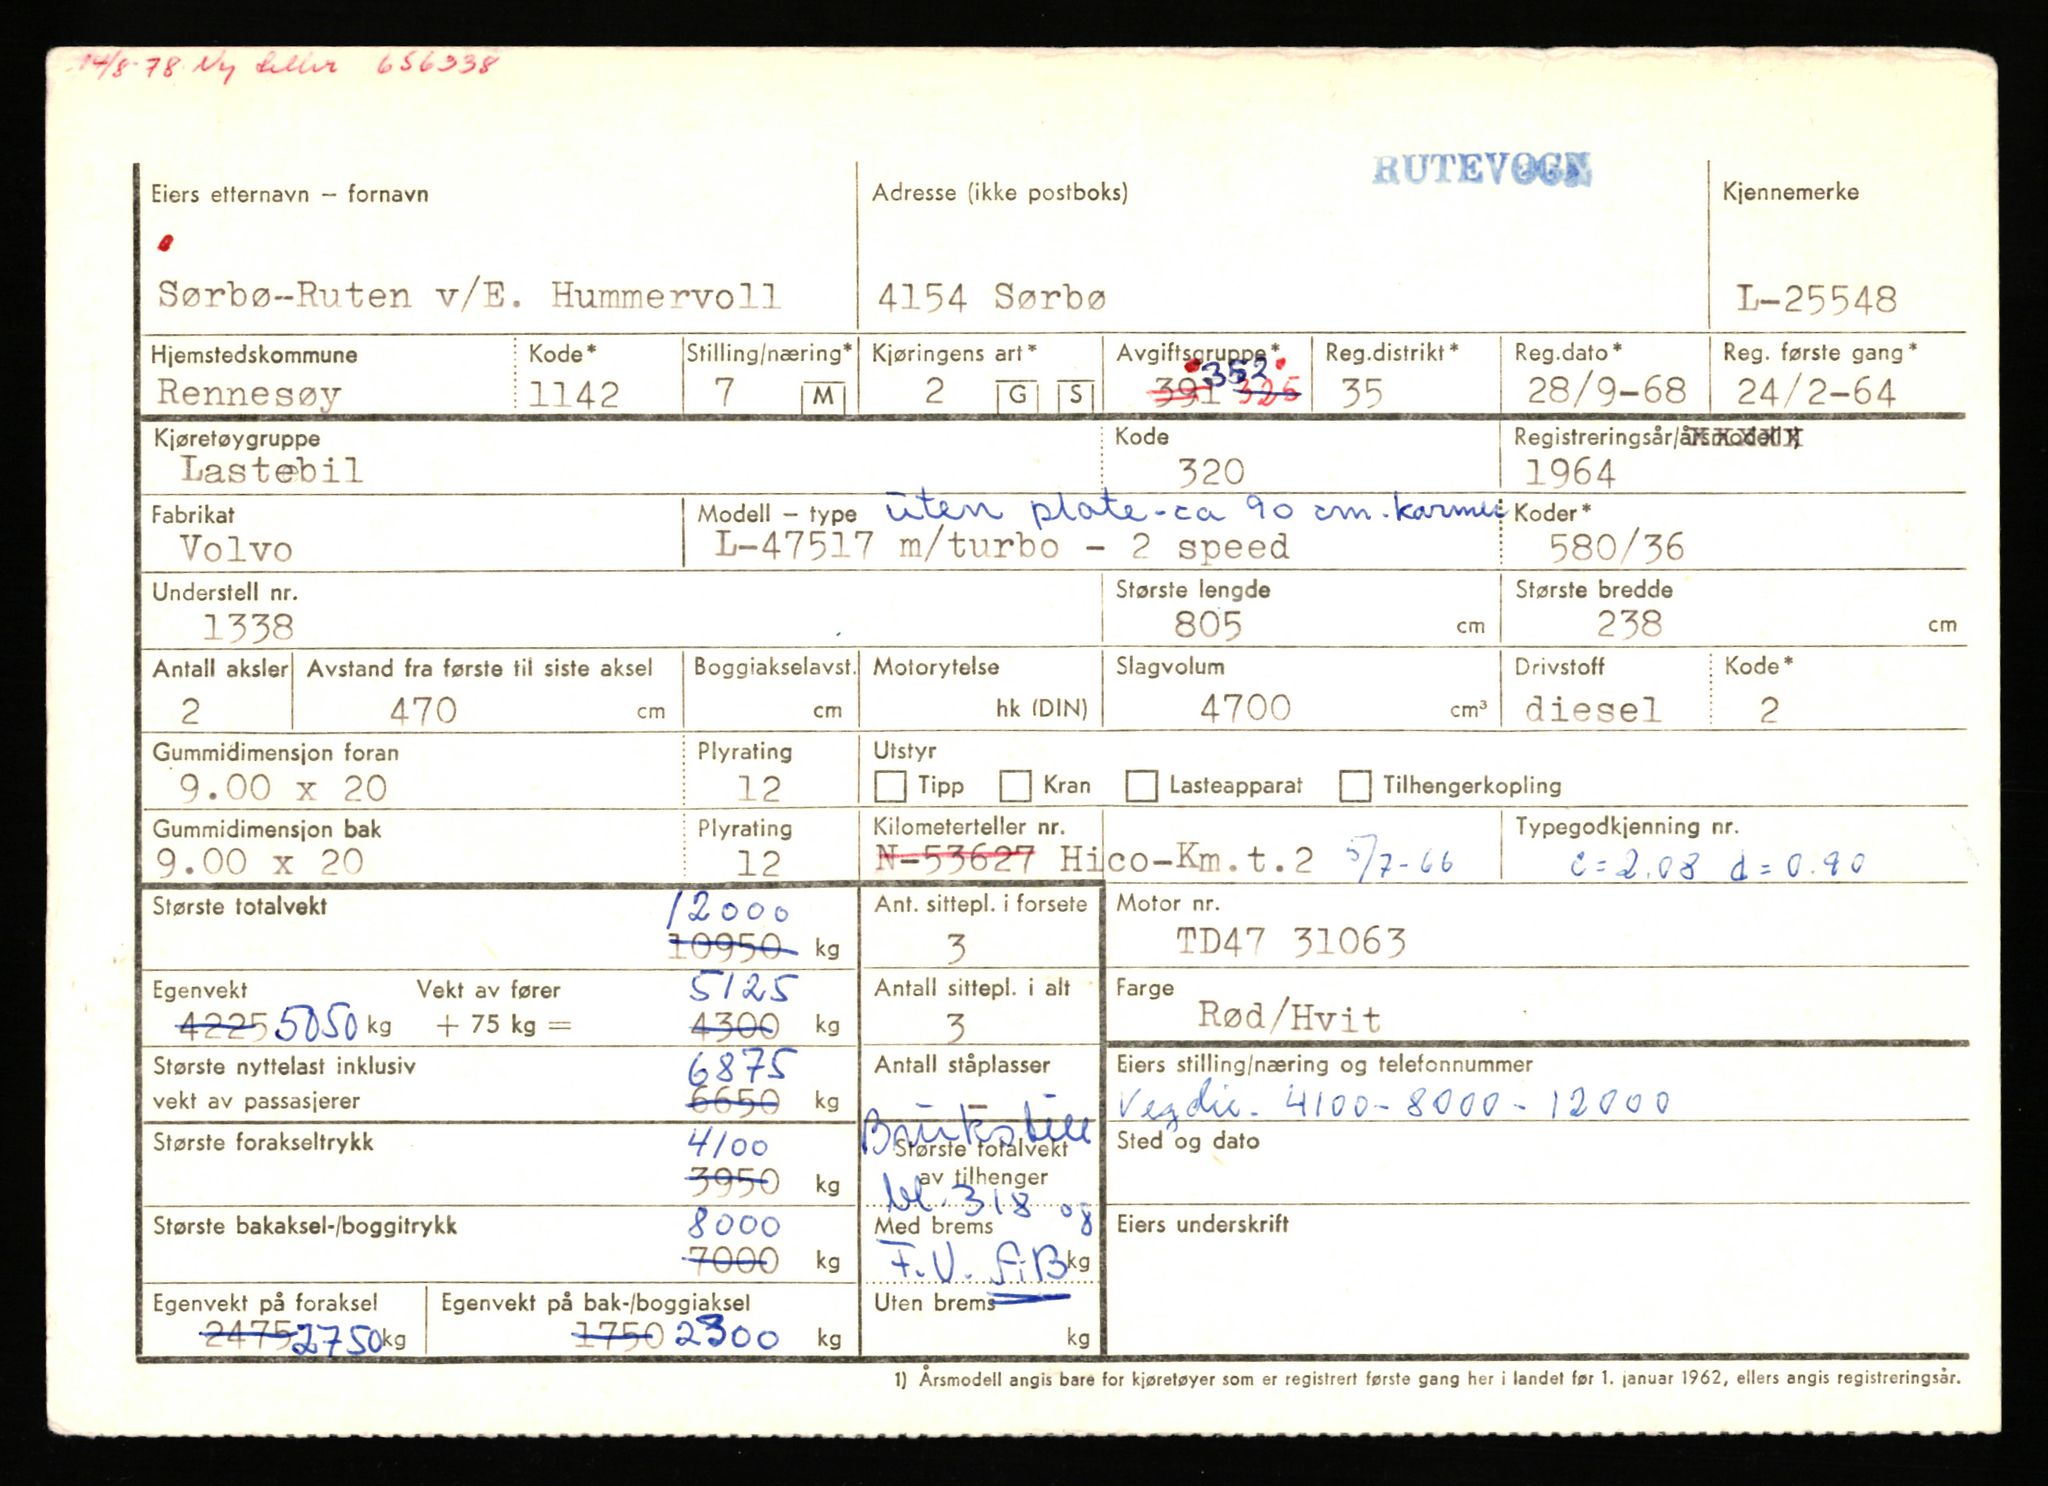 14/8-78 Ny teller 656338
RUTEVOGN
Eiers etternavn – fornavn Adresse (ikke postboks) Kjennemerke
Sørbø-Ruten v/E. Hummervoll 4154 Sørbø L-25548
Hjemstedskommune Kode* Stilling/næring* Kjøringens art* Avgiftsgruppe* Reg.distrikt* Reg.dato* Reg. første gang*
352
Rennesøy 1142 7 M 2 G S 391 326 35 28/9-68 24/2-64
Kjøretøygruppe Kode Registreringsår/årsmodell 1)
Lastebil 320 1964
uten plate-ca 90 cm. karmer
Fabrikat Modell – type Koder*
Volvo L-47517 m/turbo - 2 speed 580/36
Understell nr. Største lengde Største bredde
1338 805 cm 238 cm
Antall aksler Avstand fra første til siste aksel Boggiakselavst. Motorytelse Slagvolum Drivstoff Kode*
2 470 cm cm hk (DIN) 4700 cm³ diesel 2
Gummidimensjon foran Plyrating Utstyr
9.00 x 20 12 Tipp Kran Lasteapparat Tilhengerkopling
Gummidimensjon bak Plyrating Kilometerteller nr. Typegodkjenning nr.
9.00 x 20 12 N-53627 Hico-Km.t.2 5/7-66 c=2.08 d=0.90
Største totalvekt 12000 Ant. sittepl. i forsete Motor nr.
10950 kg 3 TD47 31063
Egenvekt Vekt av fører 5125 Antall sittepl. i alt Farge
4225 5050 kg + 75 kg = 4300 kg 3 Rød/Hvit
Største nyttelast inklusiv 6875 Antall ståplasser Eiers stilling/næring og telefonnummer
vekt av passasjerer 6650 kg – Vegdir. 4100-8000-12000
Brukstill
Største forakseltrykk 4100 Største totalvekt Sted og dato
3950 kg av tilhenger
bl. 318 og
Største bakaksel-/boggitrykk 8000 Med brems Eiers underskrift
7000 kg F.V. kg
Egenvekt på foraksel Egenvekt på bak-/boggiaksel Uten brems
2475 2750 kg 1750 2300 kg kg
1) Årsmodell angis bare for kjøretøyer som er registrert første gang her i landet før 1. januar 1962, ellers angis registreringsår.